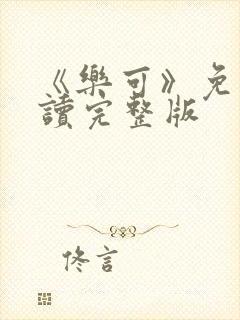 《樂可》免
讀完整版
佟言